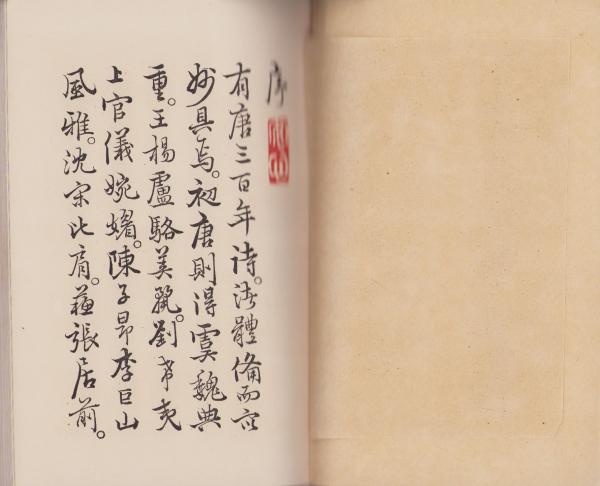 序
有唐三百年诗。諸體備而衆
妙具焉。初唐則得虞魏典
重。王楊盧駱美麗。劉希夷
上官儀婉媚。陳子昂李巨山
風雅。沈宋比肩。蘇張居前。